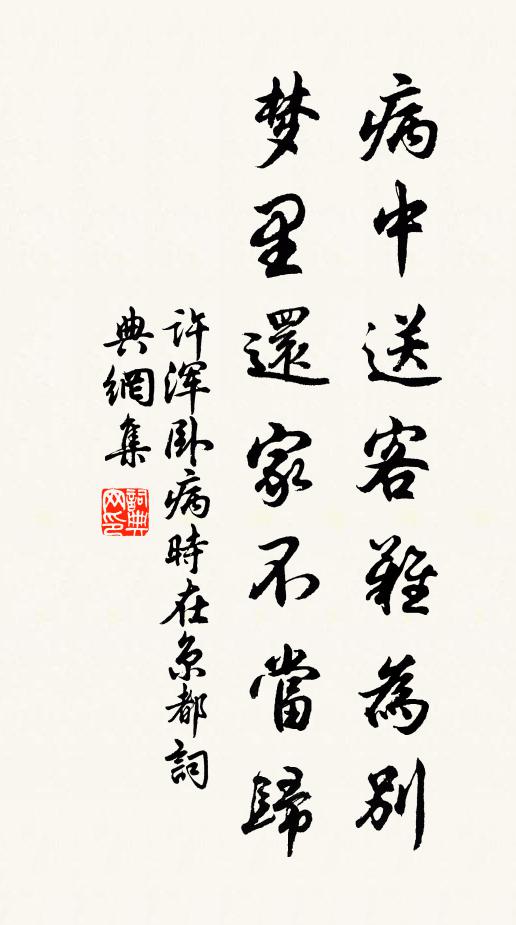 病中送客難為別
梦里還家不當歸
许渾卧病時在京都詞
典網集
詞典
网印